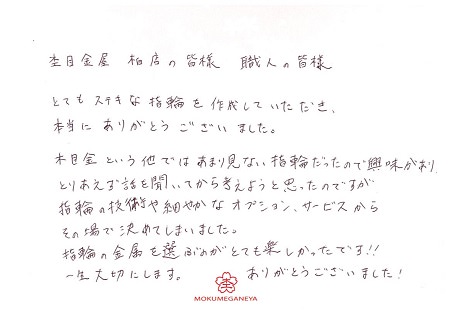 杢目金屋 柏店の皆様 職人の皆様
とてもステキな指輪を作成していただき、
本当にありがとうございました。
木目金という他ではあまり見ない指輪だったので興味があり
とりあえず話を聞いてから考えようと思ったのですが
指輪の技術や細やかなオプション、サービスから
その場で決めてしまいました。
指輪の金属を選ぶのがとても楽しかったです!!
一生大切にします。 ありがとうございました!
MOKUMEGANEYA